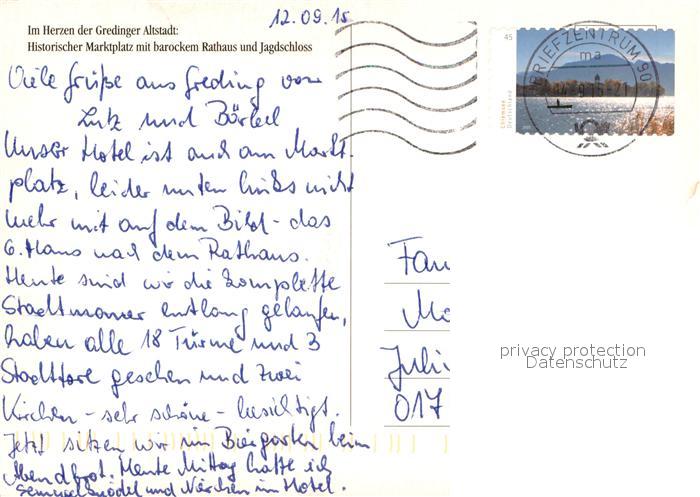 12.09.15
Im Herzen der Gredinger Altstadt:
Historischer Marktplatz mit barockem Rathaus und Jagdschloss
Viele Grüße aus Greding von
Lutz und Bärbel
Unser Hotel ist auch am Markt-
platz, leider unten links nicht
mehr mit auf dem Bild - das
6. Haus nach dem Rathaus.
Heute sind wir die komplette
Stadtmauer entlang gelaufen,
haben alle 18 Türme und 3
Stadttore gesehen und zwei
Kirchen - sehr schöne - besichtigt.
Jetzt sitzen wir im Biergarten beim
Abendbrot. Heute Mittag hatte ich
Semmelknödel und Nierchen im Hotel.
45
Chiemsee
Deutschland
BRIEFZENTRUM 90
ma
Fam
Juli
017
privacy protection
Datenschutz